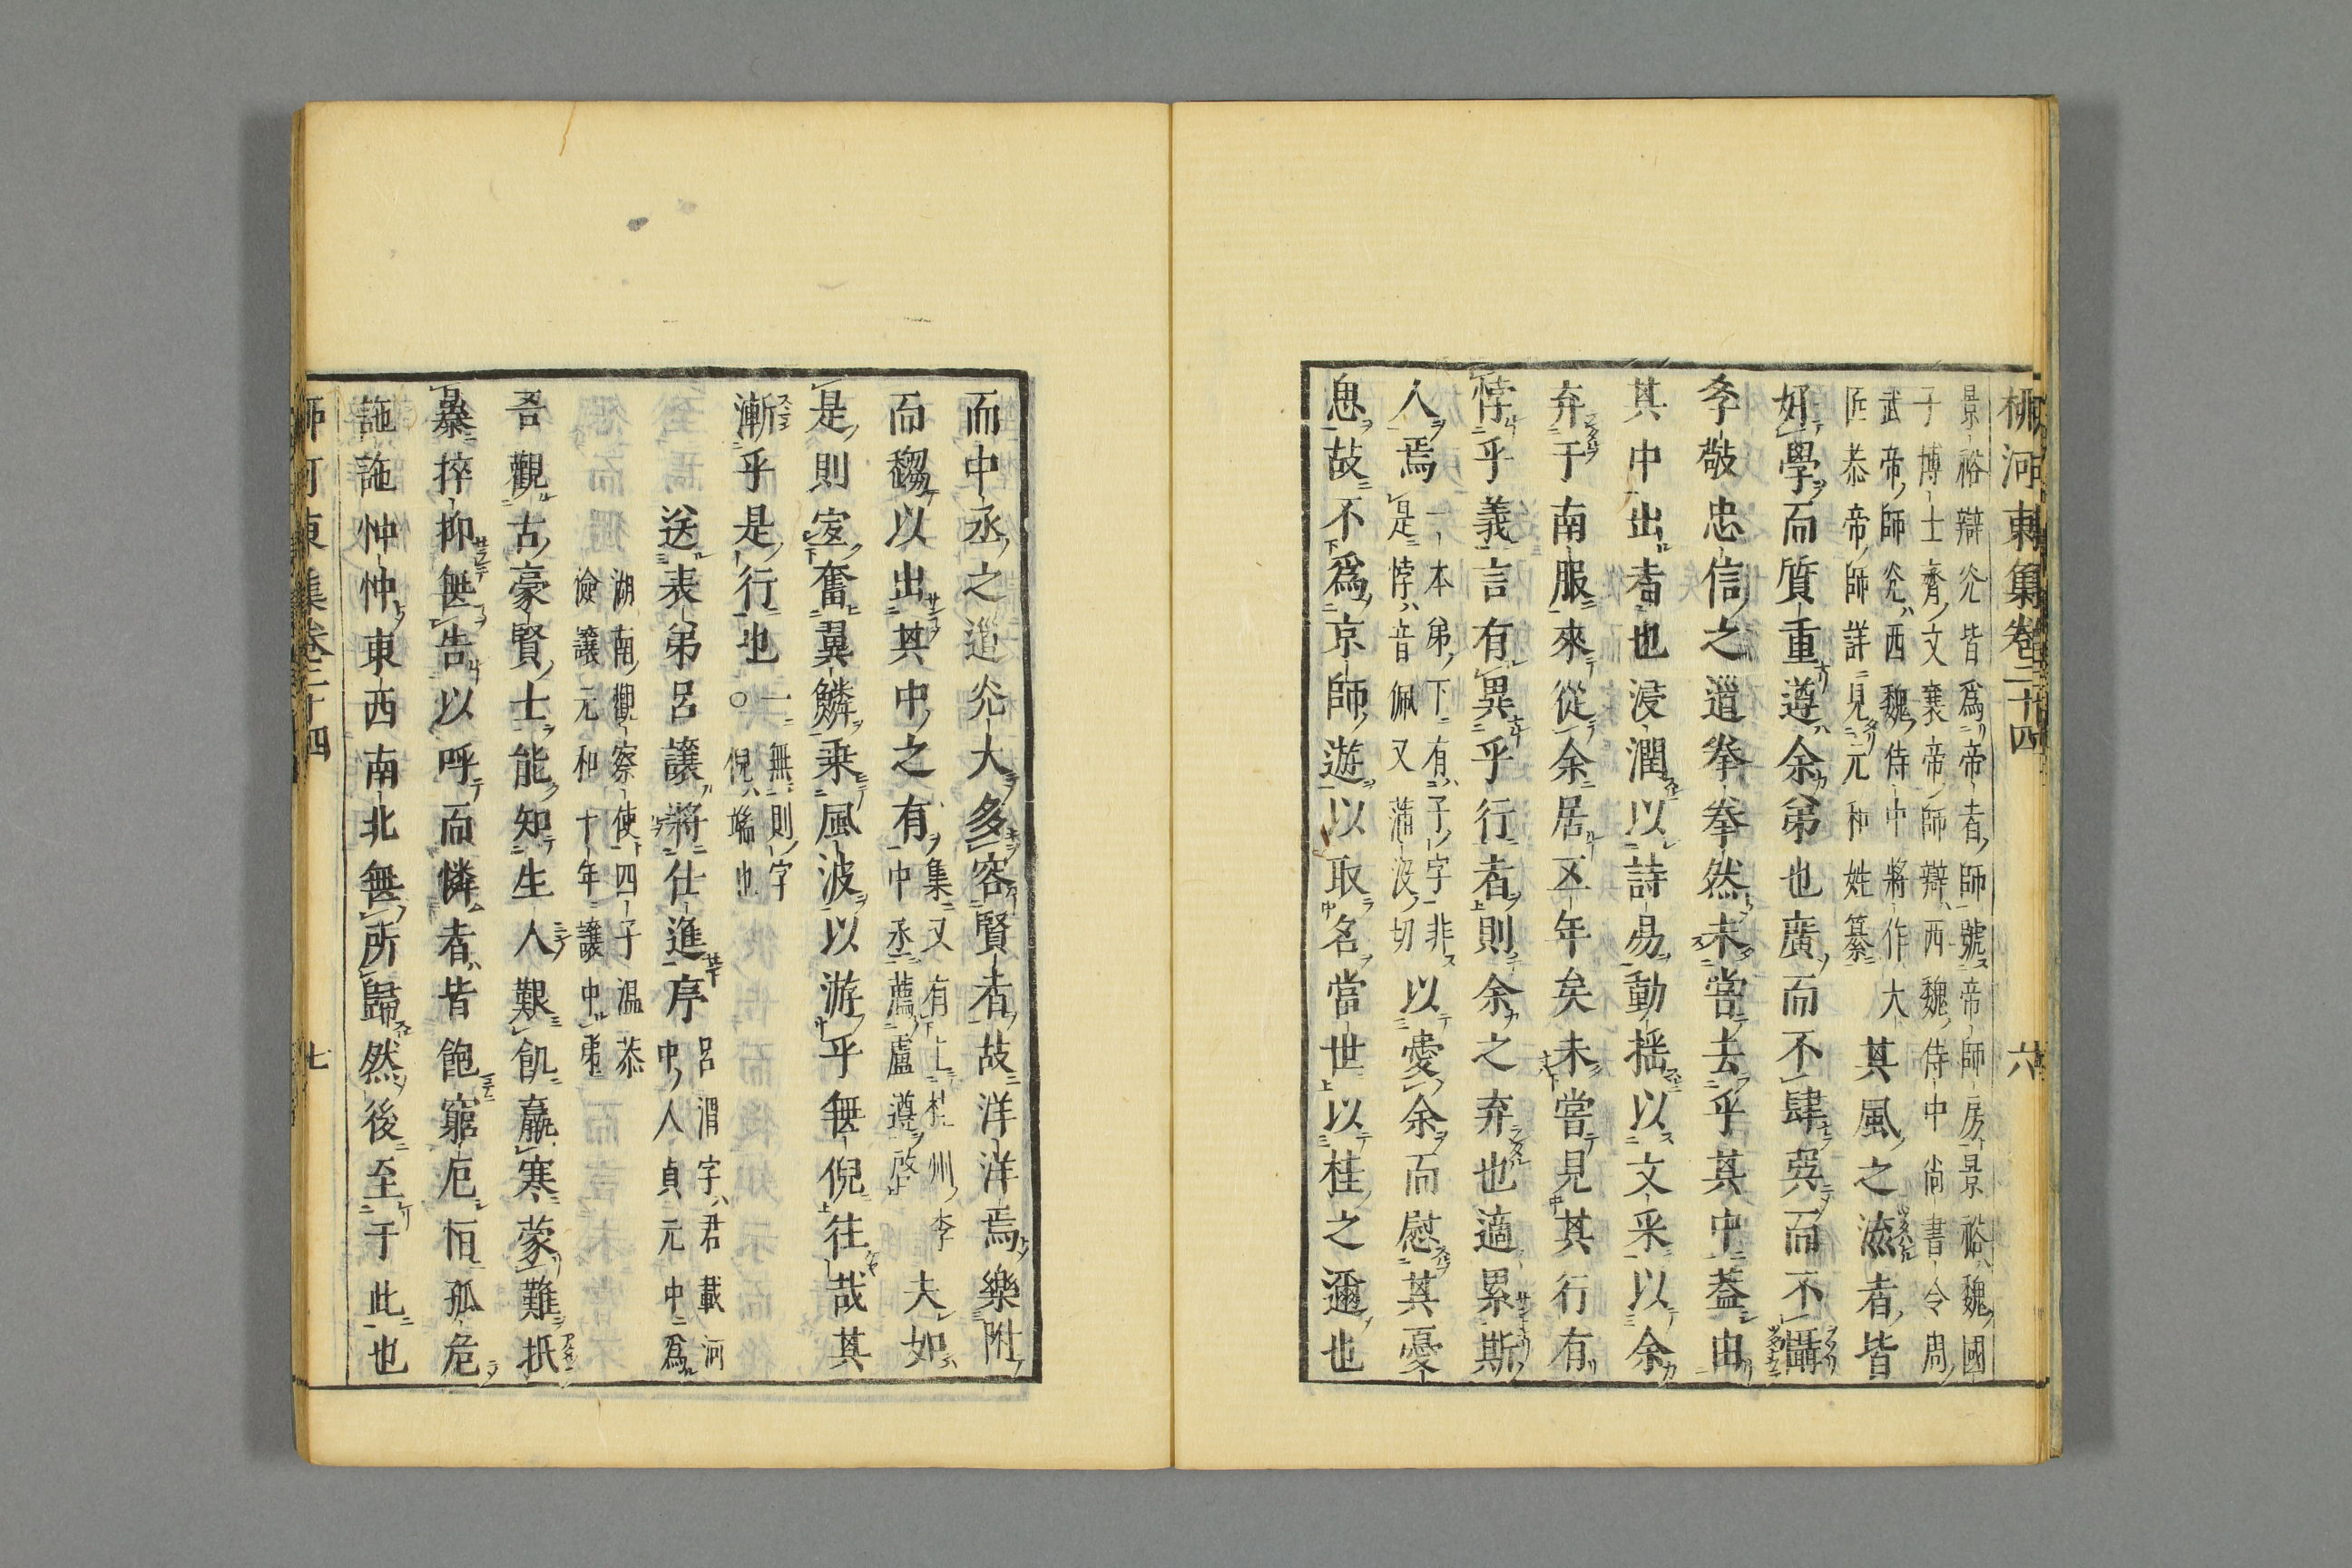 柳河東集卷二十四 六
景裕辯光皆爲帝者師號帝師房景裕魏國
子博士齊文襄帝師辯西魏侍中尚書令周
武帝師光西魏侍中將作大
匠恭帝師詳見元和姓纂
其風之流者皆
好學而質重遵余弟也廣而不肆巽而不懾
孝敬忠信之道拳拳然未嘗去乎其中蓋由
其中出者也浸潤以詩易動揺以文采以余
弃于南服來從余居五年矣未嘗見其行有
悖乎義言有異乎行者則余之弃也適累斯
人焉
一本弟下有子字非
是悖音佩又蒲没切
以愛余而慰其憂
思故不爲京師遊以取名當世以桂之邇也
而中丞之道光大多容賢者故洋洋焉樂附
而趨以出其中之有
集又有上桂州李
中丞薦盧遵啓
夫如
是則宜奮翼鱗乗風波以游乎無倪往哉其
漸乎是行也
一無則字
○倪端也
送表弟呂讓將仕進序
呂渭字君載河
中人貞元中爲
湖南觀察使四子温恭
儉讓元和十年讓中弟
吾觀古豪賢士能知生人艱飢羸寒蒙難抵
暴捽抑無告以呼而憐者皆飽窮厄恒孤危
詑詑忡忡東西南北無所歸然後至于此也
柳河東集卷二十四 七